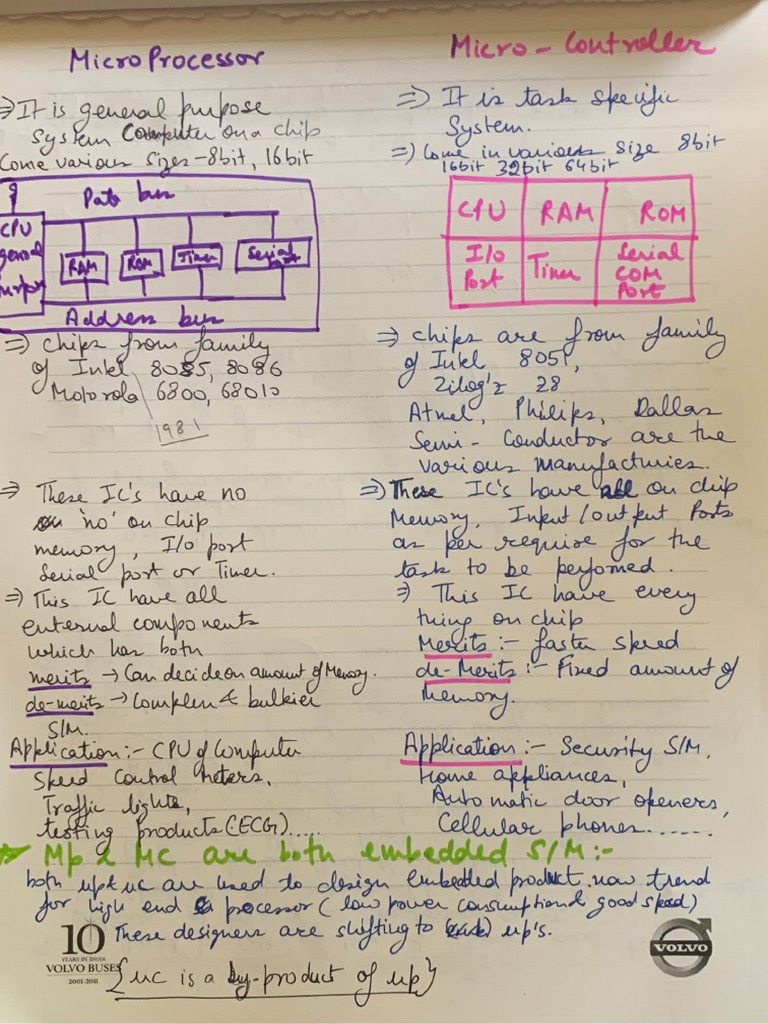 MicroProcessor
⇒ It is general purpose
System Computer on a chip
Come various sizes - 8bit, 16bit
Data bus
CPU
general
RAM
ROM
Timer
Serial
Port
Address bus
⇒ chips from family
of Intel 8085, 8086
Motorola 6800, 68010
1981
⇒ These IC's have no
'no' on chip
memory, I/o port
Serial port or Timer.
⇒ This IC have all
external components
which has both
merits → Can decide on amount of Memory.
de-merits → Complex & bulkier
S/M.
Application :- CPU of Computer
Speed Control meters,
Traffic lights,
testing products (ECG).....
Micro - Controller
⇒ It is task specific
System.
⇒ Come in various size 8bit
16bit 32bit 64bit
CPU
RAM
ROM
I/o
Port
Timer
Serial
COM
Port
⇒ chips are from family
of Intel 8051,
Zilog'z Z8
Atmel, Philips, Dallas
Semi - Conductor are the
various manufacturies.
⇒ These IC's have all on chip
Memory, Input/output Ports
as per require for the
task to be perfomed.
⇒ This IC have every
thing on chip
Merits :- faster speed
de-Merits :- Fixed amount of
Memory.
Application :- Security S/M,
Home appliances,
Automatic door openers,
Cellular phones.......
Mp & Mc are both embedded S/M :-
both up & uc are used to design Embedded product. now trend
for high end processor (low power consumption & good speed)
These designers are shifting to up's.
{uc is a by-product of up}
10
YEARS IN INDIA
VOLVO BUSES
2001-2011
VOLVO